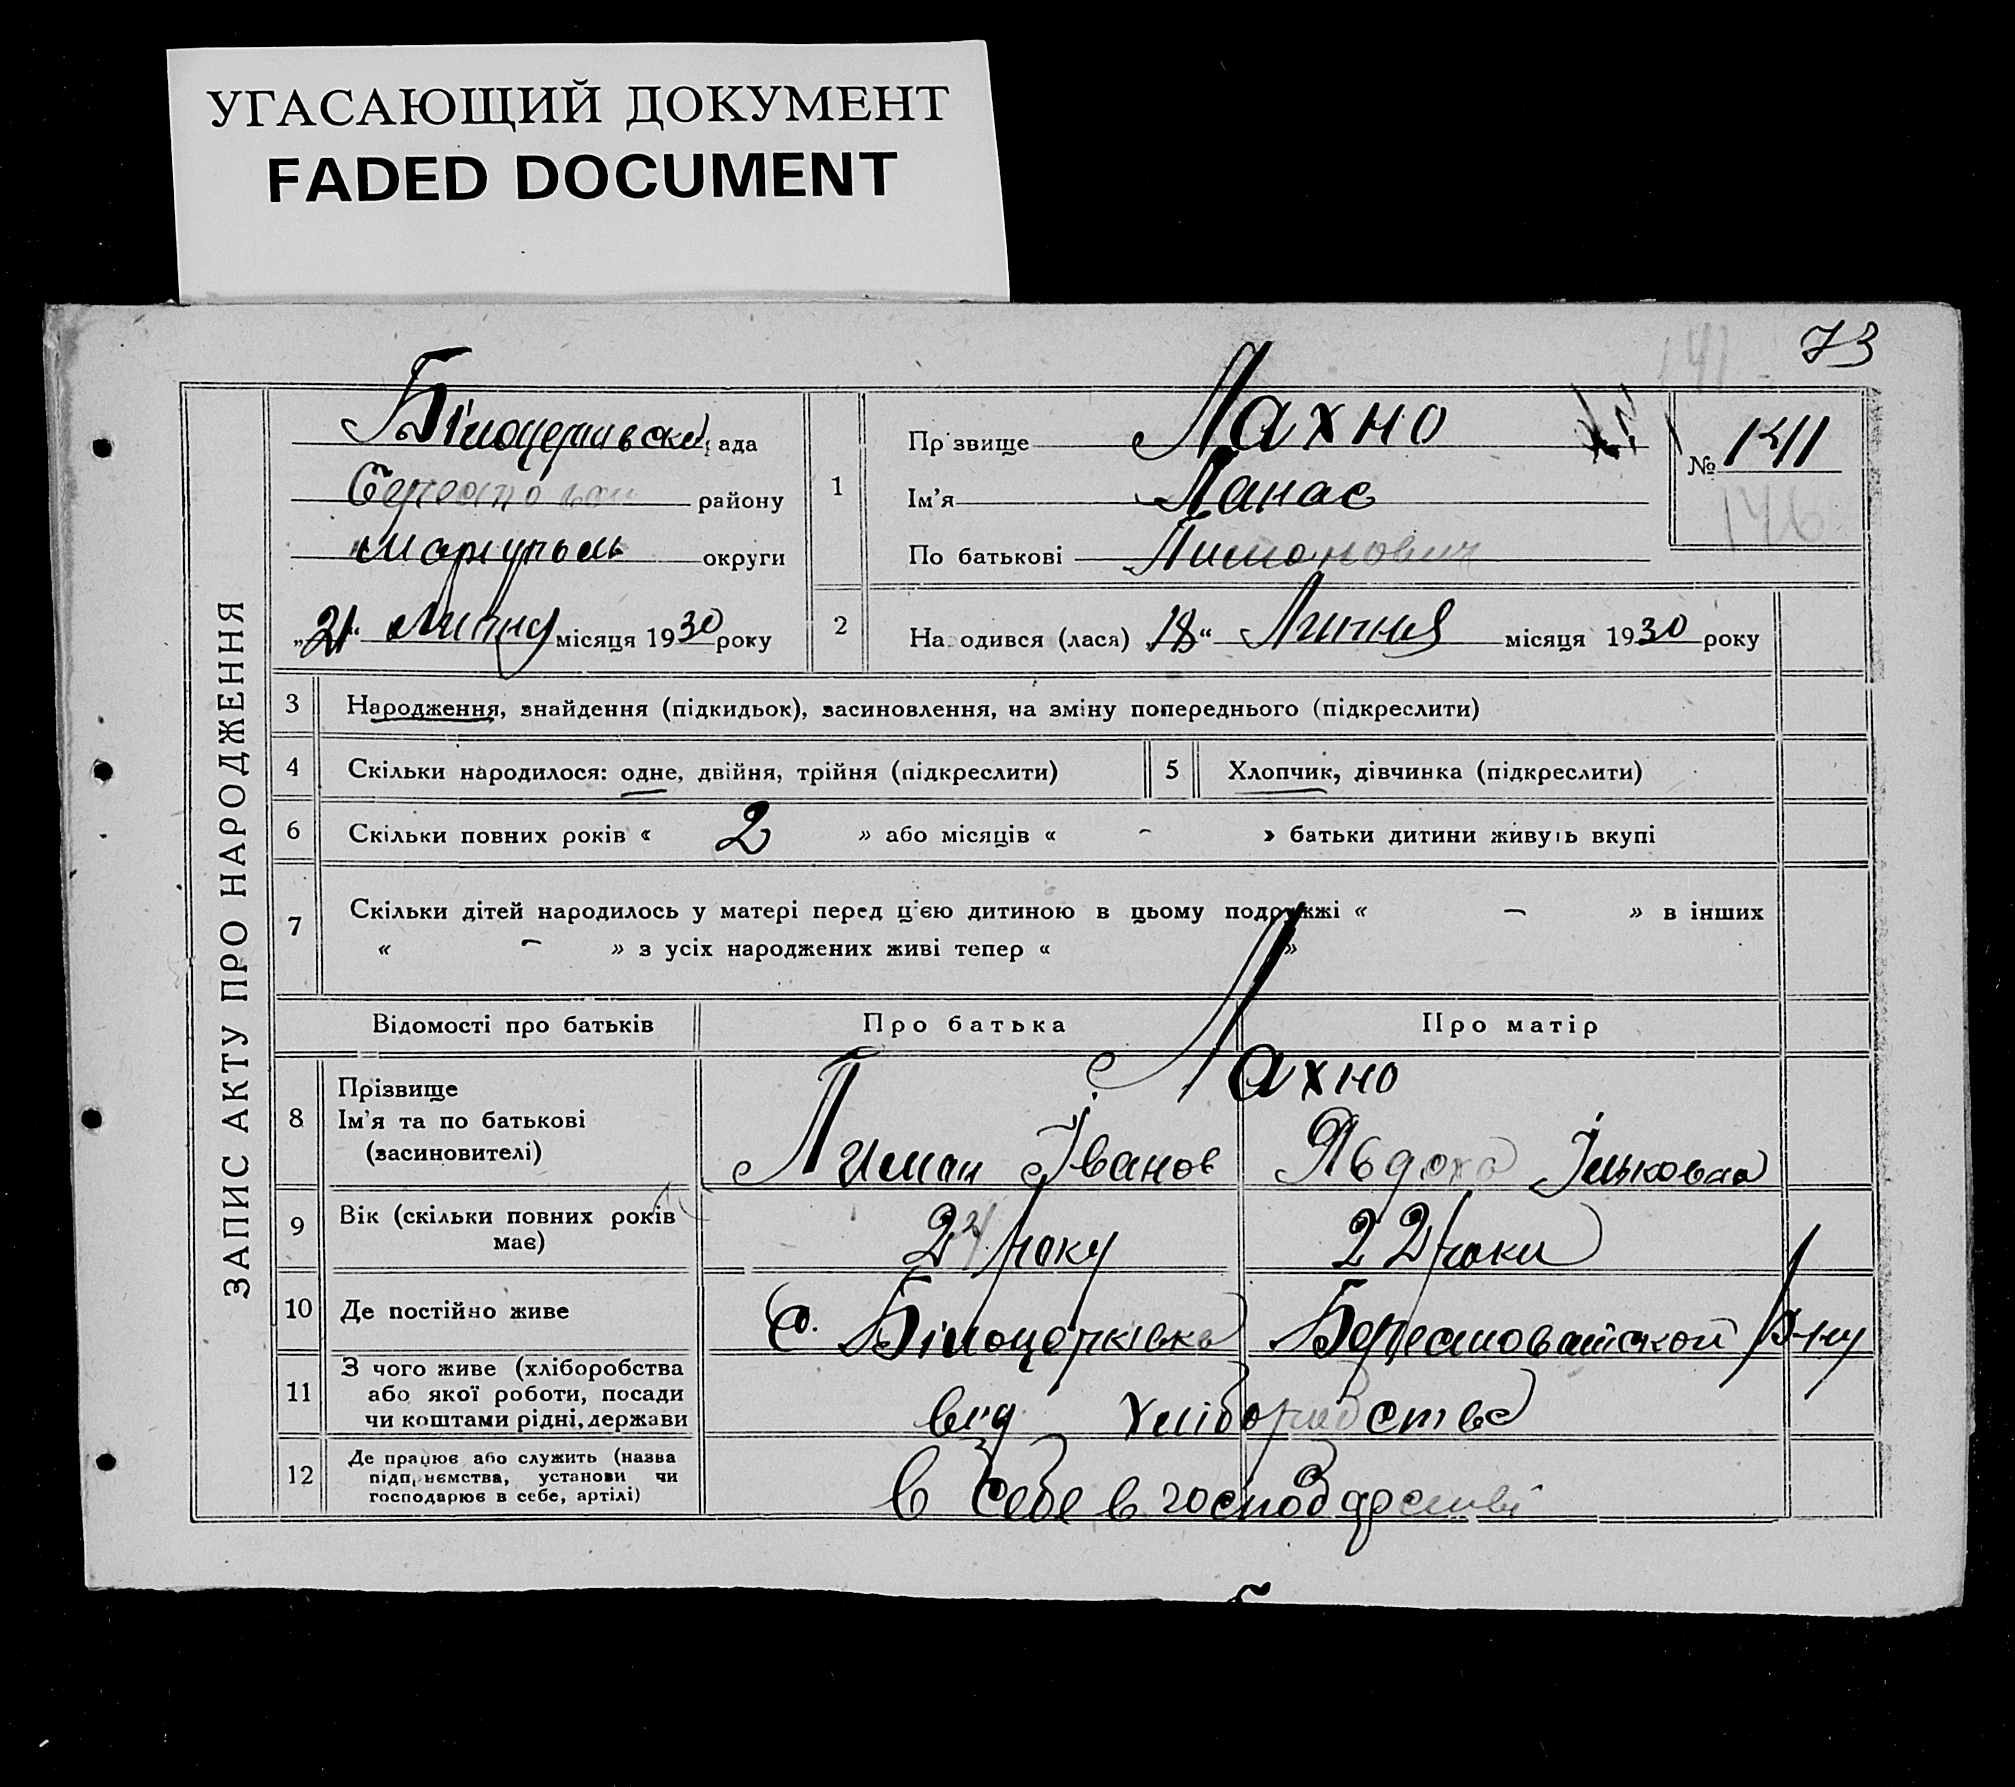 УГАСАЮЩИЙ ДОКУМЕНТ
FADED DOCUMENT
73
141
ЗАПИС АКТУ ПРО НАРОДЖЕННЯ
Білоцерківська рада
району
Маріуполь округи
„21“ Липня місяця 1930 року
1
Прізвище Махно
Ім'я Панас
По батькові Пимонович
№ 141
146
2 На одився (лася) „18“ Липня місяця 1930 року
3 Народження, знайдення (підкидьок), засиновлення, на зміну попереднього (підкреслити)
4 Скільки народилося: одне, двійня, трійня (підкреслити) 5 Хлопчик, дівчинка (підкреслити)
6 Скільки повних років « 2 » або місяців « - » батьки дитини живуть вкупі
7 Скільки дітей народилось у матері перед ц'єю дитиною в цьому подружжі « - » в інших
« - » з усіх народжених живі тепер « »
Відомості про батьків Про батька Про матір
8 Прізвище
Ім'я та по батькові
(засиновителі)
Махно
Пимон Іванов Явдоха Ільковна
9 Вік (скільки повних років
має)
22 року 22 роки
10 Де постійно живе с. Білоцерківка Берестоватской р-ну
11 З чого живе (хліборобства
або якої роботи, посади
чи коштами рідні, держави
від хліборобства
12 Де працює або служить (назва
підпр ємства, установи чи
господарює в себе, артілі)
в себе в господарстві